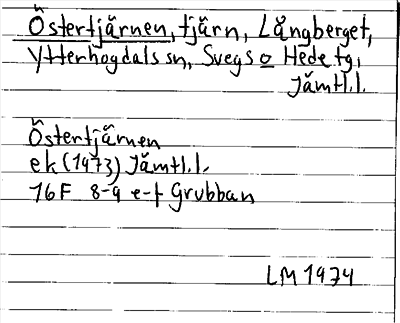 Östertjärnen, tjärn, Långberget,
Ytterhogdals sn, Svegs o Hede tg,
Jämtl.l.
Östertjärnen
ek (1973) Jämtl.l.
16F 8-9 e-f Grubban
LM 1974